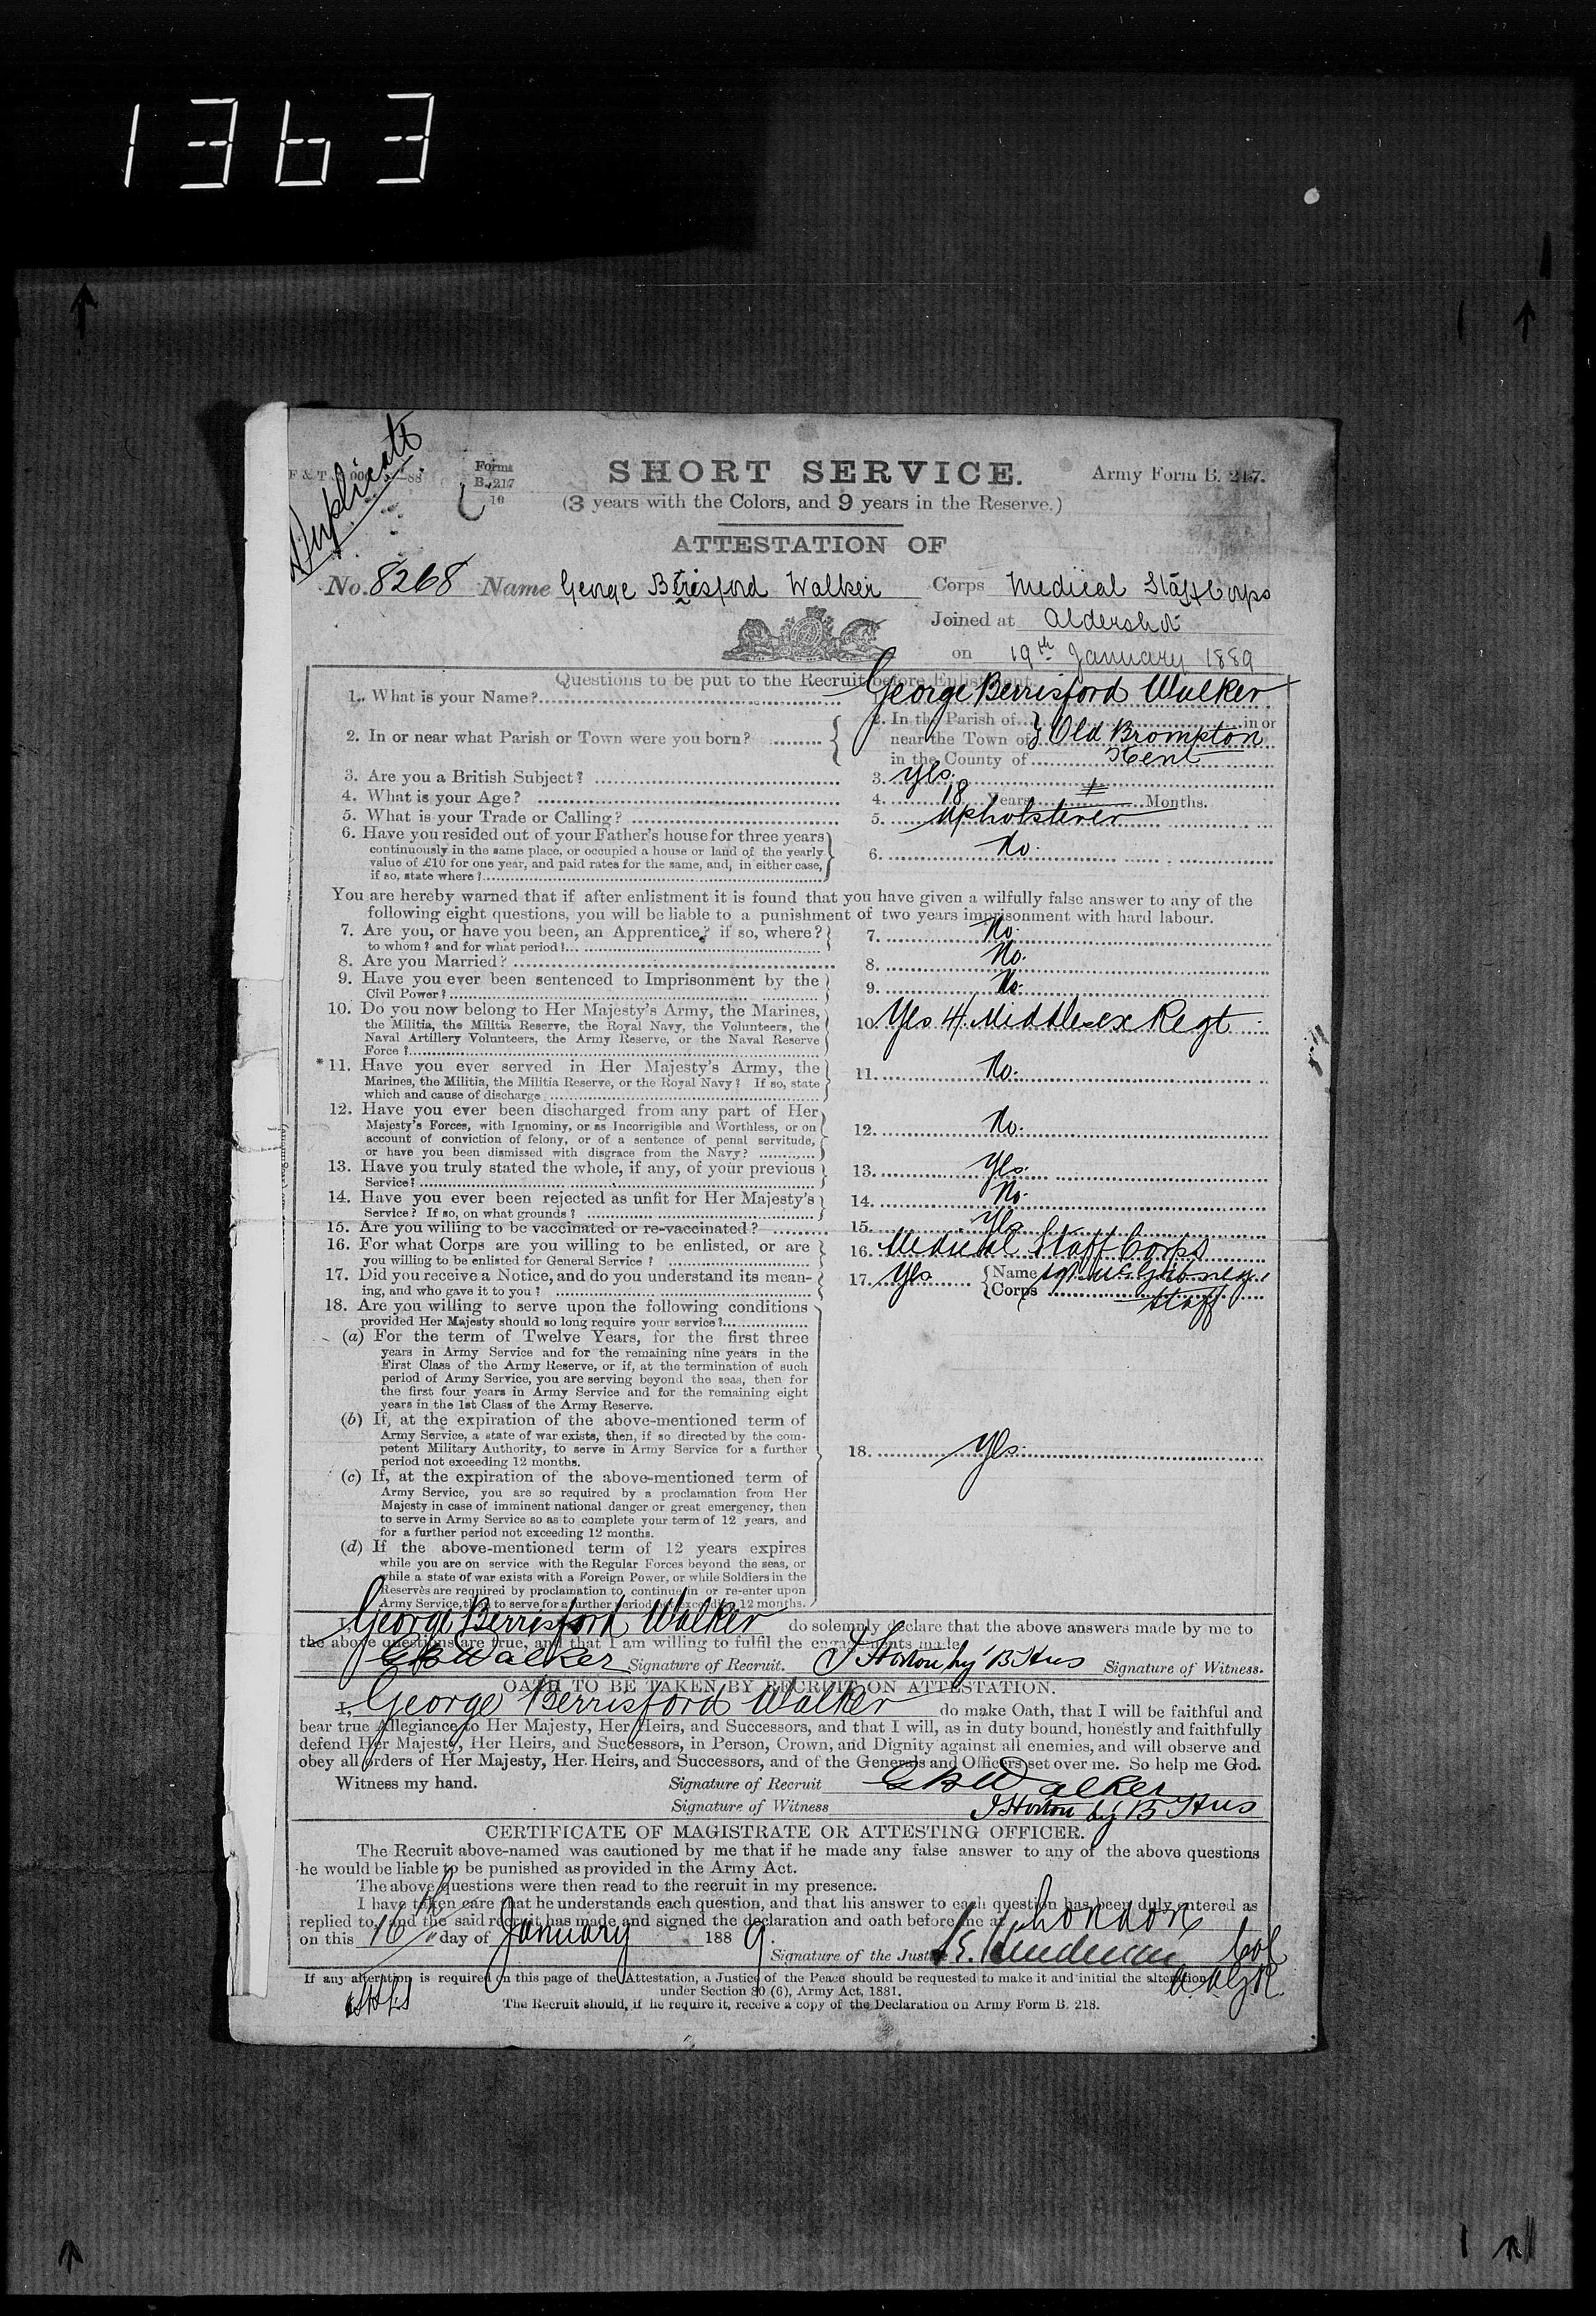 1363
Duplicate
F & T 88
Forms
B. 217
10
SHORT SERVICE.
Army Form B. 217.
(3 years with the Colors, and 9 years in the Reserve.)
ATTESTATION OF
No. 8268 Name George Berisford Walker Corps Medical Staff Corps
Joined at Aldershot
on 19th January 1889
Questions to be put to the Recruit before Enlistment.
1. What is your Name? George Berrisford Walker
2. In or near what Parish or Town were you born? 2. In the Parish of in or
near the Town of Old Brompton
in the County of Kent
3. Are you a British Subject? 3. Yes.
4. What is your Age? 4. 18 Years Months.
5. What is your Trade or Calling? 5. Upholsterer
6. Have you resided out of your Father's house for three years
continuously in the same place, or occupied a house or land of the yearly
value of £10 for one year, and paid rates for the same, and, in either case,
if so, state where? 6. No.
You are hereby warned that if after enlistment it is found that you have given a wilfully false answer to any of the
following eight questions, you will be liable to a punishment of two years imprisonment with hard labour.
7. Are you, or have you been, an Apprentice? if so, where?
to whom? and for what period? 7. No.
8. Are you Married? 8. No.
9. Have you ever been sentenced to Imprisonment by the
Civil Power? 9. No.
10. Do you now belong to Her Majesty's Army, the Marines,
the Militia, the Militia Reserve, the Royal Navy, the Volunteers, the
Naval Artillery Volunteers, the Army Reserve, or the Naval Reserve
Force? 10. Yes 4/ Middlesex Regt.
*11. Have you ever served in Her Majesty's Army, the
Marines, the Militia, the Militia Reserve, or the Royal Navy? If so, state
which and cause of discharge 11. No.
12. Have you ever been discharged from any part of Her
Majesty's Forces, with Ignominy, or as Incorrigible and Worthless, or on
account of conviction of felony, or of a sentence of penal servitude,
or have you been dismissed with disgrace from the Navy? 12. No.
13. Have you truly stated the whole, if any, of your previous
Service? 13. Yes.
14. Have you ever been rejected as unfit for Her Majesty's
Service? If so, on what grounds? 14. No.
15. Are you willing to be vaccinated or re-vaccinated? 15. Yes
16. For what Corps are you willing to be enlisted, or are
you willing to be enlisted for General Service? 16. Medical Staff Corps
17. Did you receive a Notice, and do you understand its mean-
ing, and who gave it to you? 17. Yes Name
Corps Staff
18. Are you willing to serve upon the following conditions
provided Her Majesty should so long require your service?
(a) For the term of Twelve Years, for the first three
years in Army Service and for the remaining nine years in the
First Class of the Army Reserve, or if, at the termination of such
period of Army Service, you are serving beyond the seas, then for
the first four years in Army Service and for the remaining eight
years in the 1st Class of the Army Reserve.
(b) If, at the expiration of the above-mentioned term of
Army Service, a state of war exists, then, if so directed by the com-
petent Military Authority, to serve in Army Service for a further
period not exceeding 12 months.
18. Yes.
(c) If, at the expiration of the above-mentioned term of
Army Service, you are so required by a proclamation from Her
Majesty in case of imminent national danger or great emergency, then
to serve in Army Service so as to complete your term of 12 years, and
for a further period not exceeding 12 months.
(d) If the above-mentioned term of 12 years expires
while you are on service with the Regular Forces beyond the seas, or
while a state of war exists with a Foreign Power, or while Soldiers in the
Reserves are required by proclamation to continue in or re-enter upon
Army Service, then to serve for a further period not exceeding 12 months.
I, George Berrisford Walker do solemnly declare that the above answers made by me to
the above questions are true, and that I am willing to fulfil the engagements made.
G B Walker Signature of Recruit. Signature of Witness.
OATH TO BE TAKEN BY RECRUIT ON ATTESTATION.
I, George Berrisford Walker do make Oath, that I will be faithful and
bear true Allegiance to Her Majesty, Her Heirs, and Successors, and that I will, as in duty bound, honestly and faithfully
defend Her Majesty, Her Heirs, and Successors, in Person, Crown, and Dignity against all enemies, and will observe and
obey all orders of Her Majesty, Her Heirs, and Successors, and of the Generals and Officers set over me. So help me God.
Witness my hand. Signature of Recruit G B Walker
Signature of Witness
CERTIFICATE OF MAGISTRATE OR ATTESTING OFFICER.
The Recruit above-named was cautioned by me that if he made any false answer to any of the above questions
he would be liable to be punished as provided in the Army Act.
The above questions were then read to the recruit in my presence.
I have taken care that he understands each question, and that his answer to each question has been duly entered as
replied to, and the said recruit has made and signed the declaration and oath before me at London
on this 16th day of January 1889.
Signature of the Justice Col
If any alteration is required on this page of the Attestation, a Justice of the Peace should be requested to make it and initial the alteration
under Section 80 (6), Army Act, 1881.
The Recruit should, if he require it, receive a copy of the Declaration on Army Form B. 218.